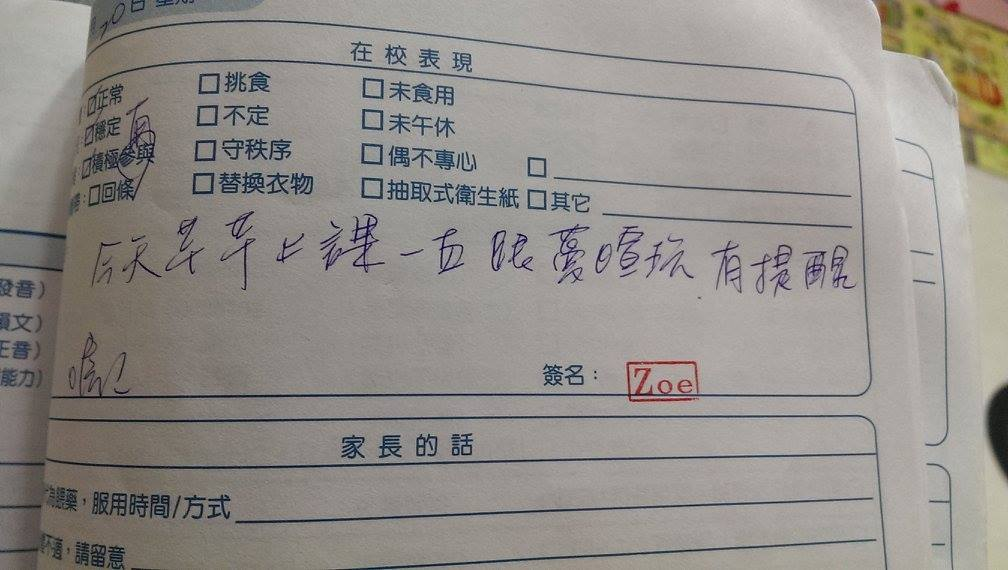 0日 星期
在校表現
☑正常 □挑食 □未食用
☑穩定 □不定 □未午休
☑積極參與 再 □守秩序 □偶不專心 □
□回條 □替換衣物 □抽取式衛生紙 □其它
今天芊芊上課一直跟蔓暄玩.有提醒
簽名： Zoe
發音)
韻文)
正音)
能力)
家長的話
為餵藥，服用時間/方式
不適，請留意